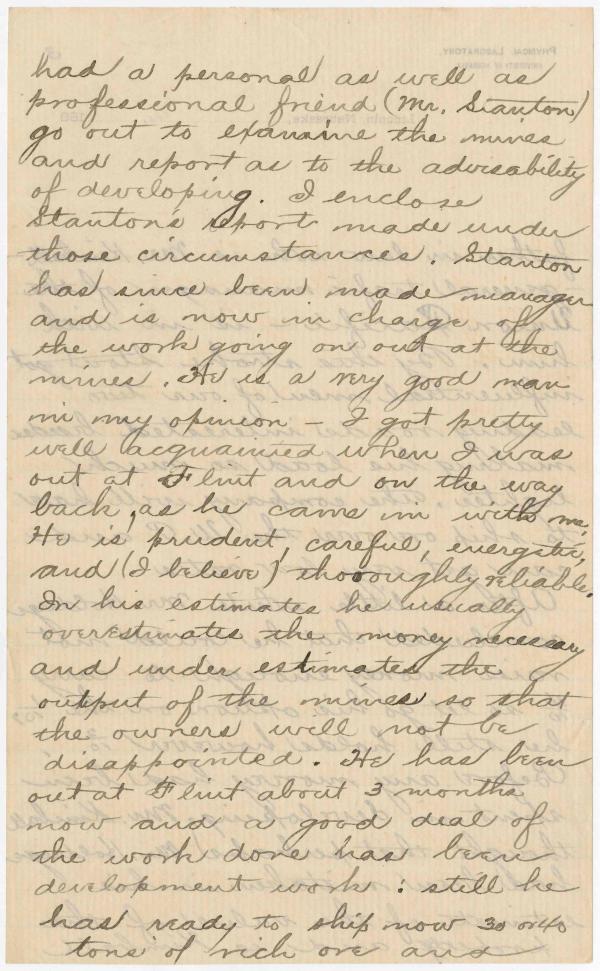 had a personal as well as
professional friend (Mr. Stanton)
go out to examine the mines
and report as to the advisability
of developing. I enclose
Stanton's report made under
those circumstances. Stanton
has since been made manager
and is now in charge of
the work going on out at the
mines. He is a very good man
in my opinion - I got pretty
well acquainted when I was
out at Flint and on the way
back, as he came in with me.
He is prudent, careful, energetic,
and (I believe) thoroughly reliable.
In his estimates he usually
overestimates the money necessary
and under estimates the
output of the mines so that
the owners will not be
disappointed. He has been
out at Flint about 3 months
now and a good deal of
the work done has been
development work : still he
has ready to ship now 30 or 40
tons of rich ore and